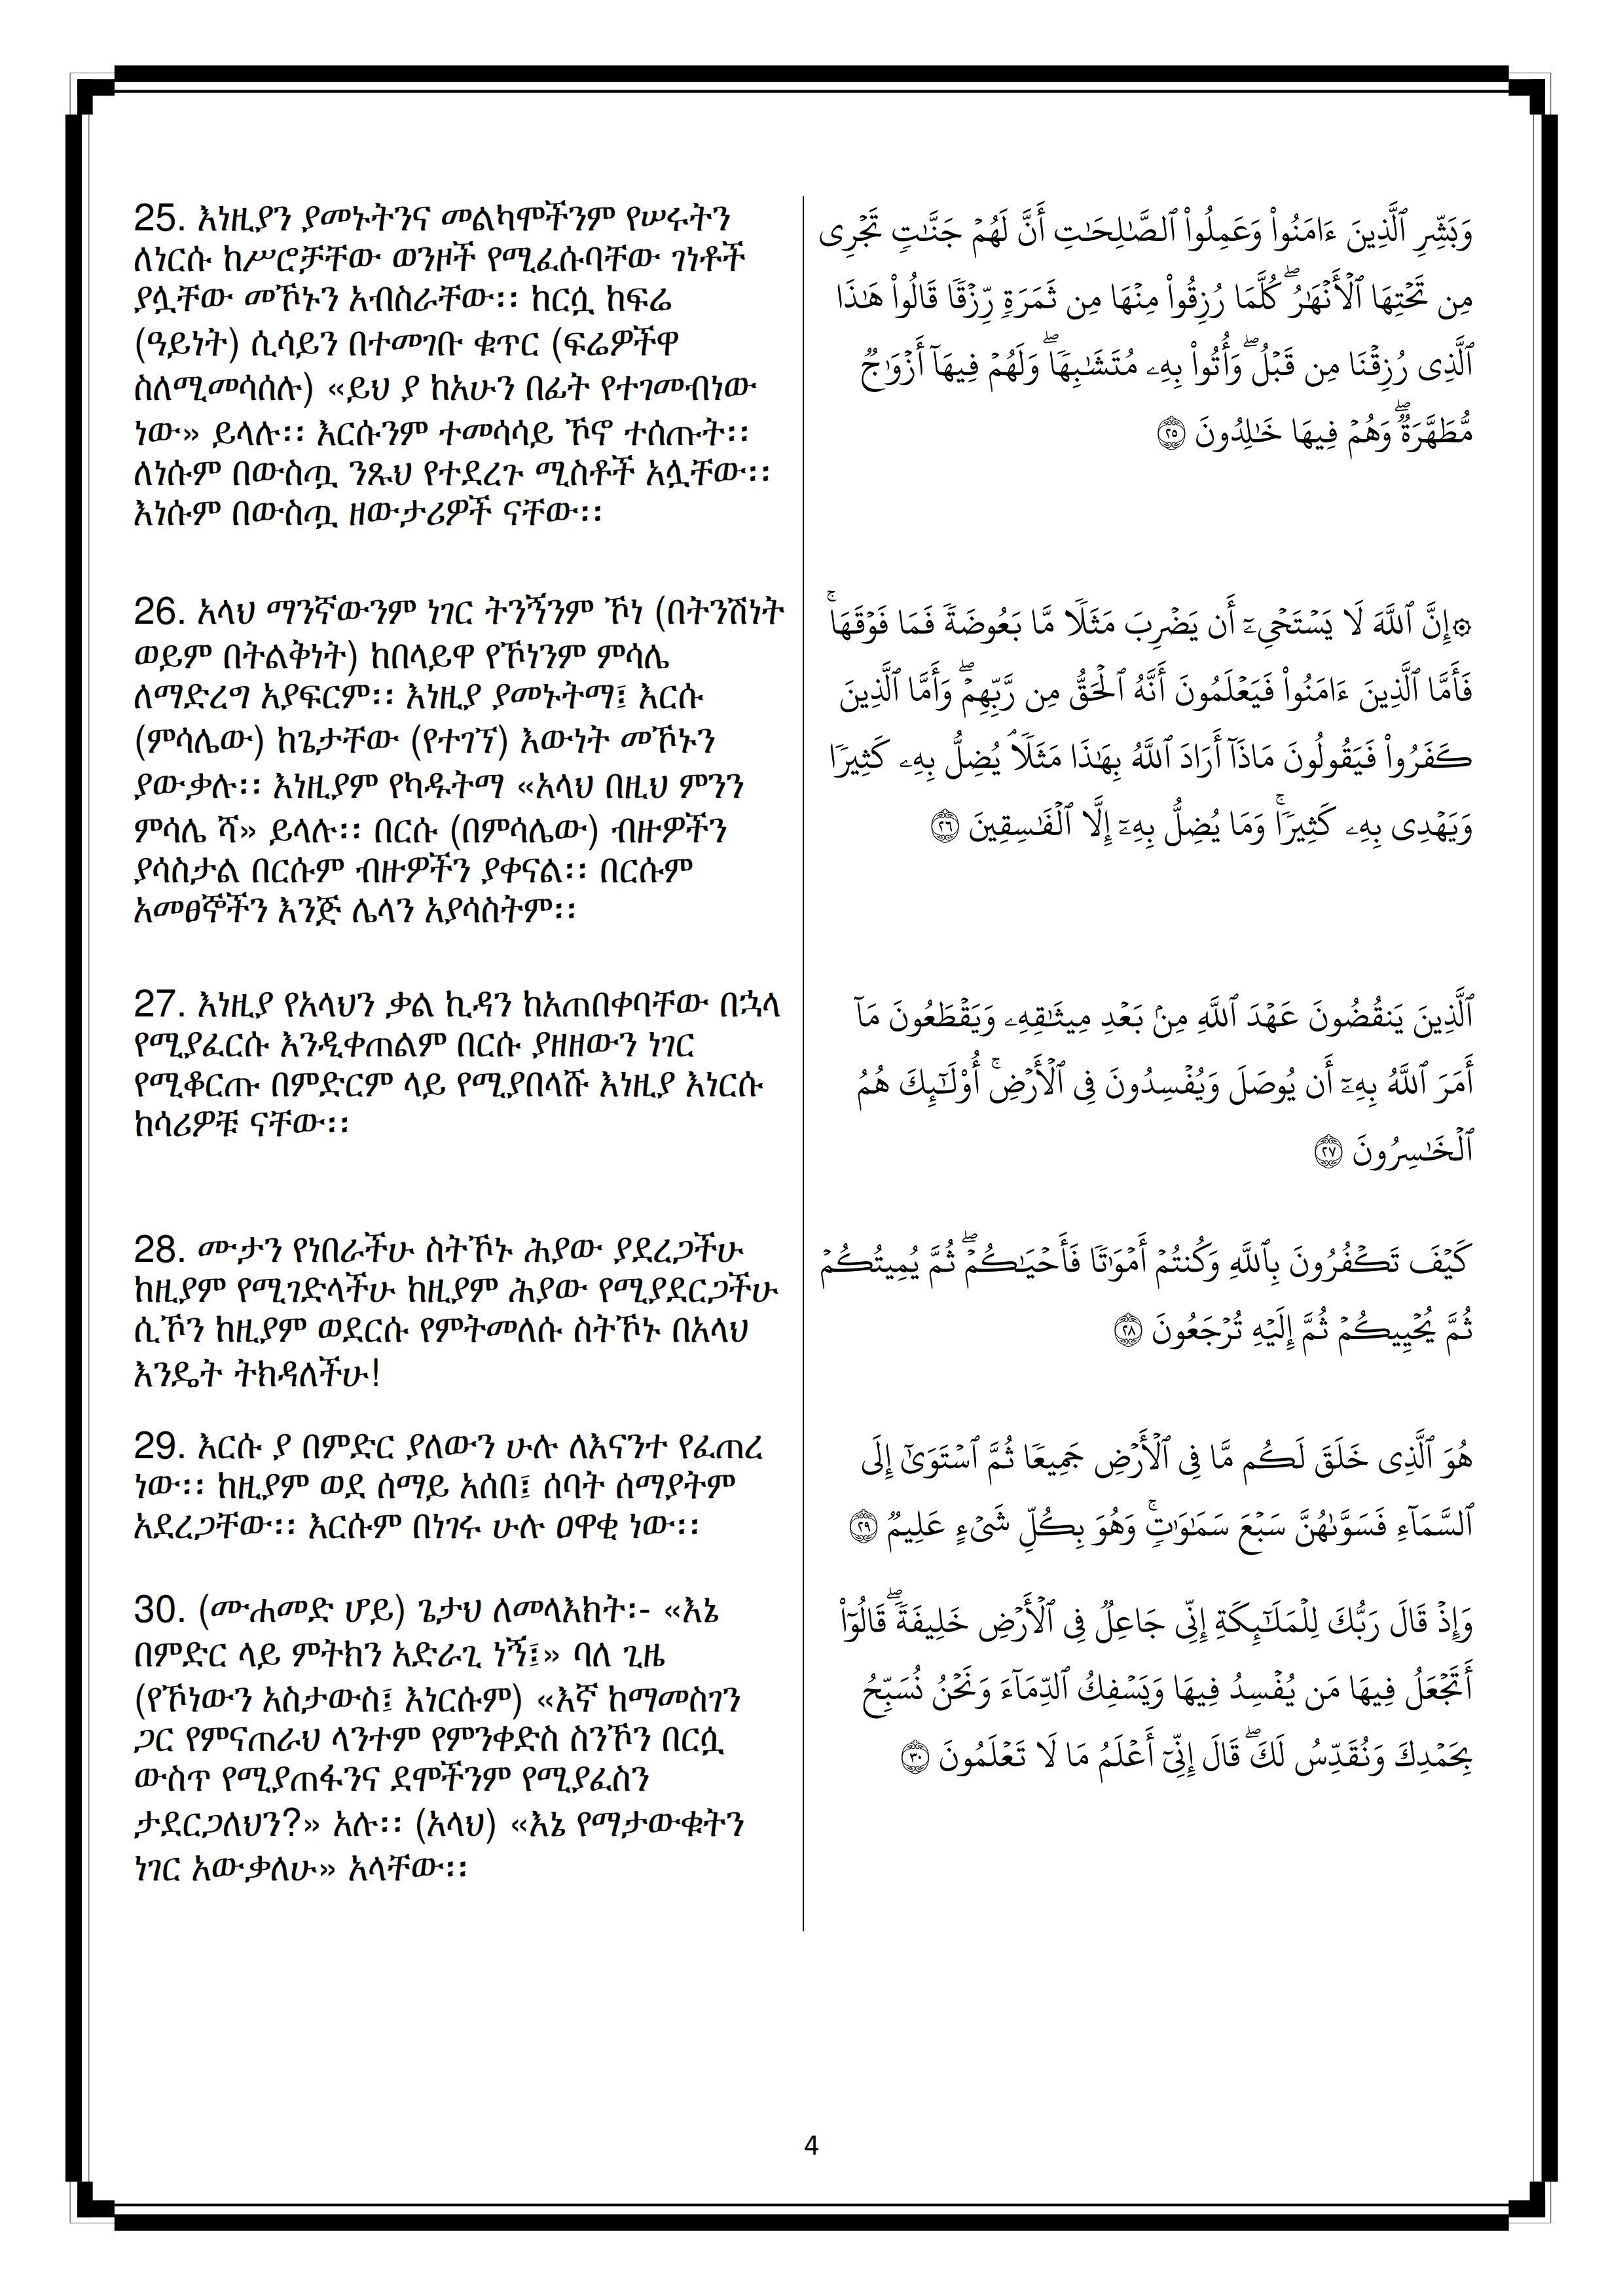 25. እነዚያን ያመኑትንና መልካሞችንም የሠሩትን
ለነርሱ ከሥሮቻቸው ወንዞች የሚፈሱባቸው ገነቶች
ያሏቸው መኾኑን አብስራቸው፡፡ ከርሷ ከፍሬ
(ዓይነት) ሲሳይን በተመገቡ ቁጥር (ፍሬዎችዋ
ስለሚመሳሰሉ) «ይህ ያ ከአሁን በፊት የተገመብነው
ነው» ይላሉ፡፡ እርሱንም ተመሳሳይ ኾኖ ተሰጡት፡፡
ለነሱም በውስጧ ንጹህ የተደረጉ ሚስቶች አሏቸው፡፡
እነሱም በውስጧ ዘውታሪዎች ናቸው፡፡
وَبَشِّرِ ٱلَّذِينَ ءَامَنُوا۟ وَعَمِلُوا۟ ٱلصَّـٰلِحَـٰتِ أَنَّ لَهُمْ جَنَّـٰتٍۢ تَجْرِى
مِن تَحْتِهَا ٱلْأَنْهَـٰرُ ۖ كُلَّمَا رُزِقُوا۟ مِنْهَا مِن ثَمَرَةٍۢ رِّزْقًۭا قَالُوا۟ هَـٰذَا
ٱلَّذِى رُزِقْنَا مِن قَبْلُ ۖ وَأُتُوا۟ بِهِۦ مُتَشَـٰبِهًۭا ۖ وَلَهُمْ فِيهَآ أَزْوَٰجٌۭ
مُّطَهَّرَةٌۭ ۖ وَهُمْ فِيهَا خَـٰلِدُونَ ٢٥
26. አላህ ማንኛውንም ነገር ትንኝንም ኾነ (በትንሽነት
ወይም በትልቅነት) ከበላይዋ የኾነንም ምሳሌ
ለማድረግ አያፍርም፡፡ እነዚያ ያመኑትማ፤ እርሱ
(ምሳሌው) ከጌታቸው (የተገኘ) እውነት መኾኑን
ያውቃሉ፡፡ እነዚያም የካዱትማ «አላህ በዚህ ምንን
ምሳሌ ሻ» ይላሉ፡፡ በርሱ (በምሳሌው) ብዙዎችን
ያሳስታል በርሱም ብዙዎችን ያቀናል፡፡ በርሱም
አመፀኞችን እንጅ ሌላን አያሳስትም፡፡
۞إِنَّ ٱللَّهَ لَا يَسْتَحْىِۦٓ أَن يَضْرِبَ مَثَلًۭا مَّا بَعُوضَةًۭ فَمَا فَوْقَهَا ۚ
فَأَمَّا ٱلَّذِينَ ءَامَنُوا۟ فَيَعْلَمُونَ أَنَّهُ ٱلْحَقُّ مِن رَّبِّهِمْ ۖ وَأَمَّا ٱلَّذِينَ
كَفَرُوا۟ فَيَقُولُونَ مَاذَآ أَرَادَ ٱللَّهُ بِهَـٰذَا مَثَلًۭا ۘ يُضِلُّ بِهِۦ كَثِيرًۭا
وَيَهْدِى بِهِۦ كَثِيرًۭا ۚ وَمَا يُضِلُّ بِهِۦٓ إِلَّا ٱلْفَـٰسِقِينَ ٢٦
27. እነዚያ የአላህን ቃል ኪዳን ከአጠበቀባቸው በኋላ
የሚያፈርሱ እንዲቀጠልም በርሱ ያዘዘውን ነገር
የሚቆርጡ በምድርም ላይ የሚያበላሹ እነዚያ እነርሱ
ከሳሪዎቹ ናቸው፡፡
ٱلَّذِينَ يَنقُضُونَ عَهْدَ ٱللَّهِ مِنۢ بَعْدِ مِيثَـٰقِهِۦ وَيَقْطَعُونَ مَآ
أَمَرَ ٱللَّهُ بِهِۦٓ أَن يُوصَلَ وَيُفْسِدُونَ فِى ٱلْأَرْضِ ۚ أُو۟لَـٰٓئِكَ هُمُ
ٱلْخَـٰسِرُونَ ٢٧
28. ሙታን የነበራችሁ ስትኾኑ ሕያው ያደረጋችሁ
ከዚያም የሚገድላችሁ ከዚያም ሕያው የሚያደርጋችሁ
ሲኾን ከዚያም ወደርሱ የምትመለሱ ስትኾኑ በአላህ
እንዴት ትክዳለችሁ!
كَيْفَ تَكْفُرُونَ بِٱللَّهِ وَكُنتُمْ أَمْوَٰتًۭا فَأَحْيَـٰكُمْ ۖ ثُمَّ يُمِيتُكُمْ
ثُمَّ يُحْيِيكُمْ ثُمَّ إِلَيْهِ تُرْجَعُونَ ٢٨
29. እርሱ ያ በምድር ያለውን ሁሉ ለእናንተ የፈጠረ
ነው፡፡ ከዚያም ወደ ሰማይ አሰበ፤ ሰባት ሰማያትም
አደረጋቸው፡፡ እርሱም በነገሩ ሁሉ ዐዋቂ ነው፡፡
هُوَ ٱلَّذِى خَلَقَ لَكُم مَّا فِى ٱلْأَرْضِ جَمِيعًۭا ثُمَّ ٱسْتَوَىٰٓ إِلَى
ٱلسَّمَآءِ فَسَوَّىٰهُنَّ سَبْعَ سَمَـٰوَٰتٍۢ ۚ وَهُوَ بِكُلِّ شَىْءٍ عَلِيمٌۭ ٢٩
30. (ሙሐመድ ሆይ) ጌታህ ለመላእክት፡- «እኔ
በምድር ላይ ምትክን አድራጊ ነኝ፤» ባለ ጊዜ
(የኾነውን አስታውስ፤ እነርሱም) «እኛ ከማመስገን
ጋር የምናጠራህ ላንተም የምንቀድስ ስንኾን በርሷ
ውስጥ የሚያጠፋንና ደሞችንም የሚያፈስን
ታደርጋለህን?» አሉ፡፡ (አላህ) «እኔ የማታውቁትን
ነገር አውቃለሁ» አላቸው፡፡
وَإِذْ قَالَ رَبُّكَ لِلْمَلَـٰٓئِكَةِ إِنِّى جَاعِلٌۭ فِى ٱلْأَرْضِ خَلِيفَةًۭ ۖ قَالُوٓا۟
أَتَجْعَلُ فِيهَا مَن يُفْسِدُ فِيهَا وَيَسْفِكُ ٱلدِّمَآءَ وَنَحْنُ نُسَبِّحُ
بِحَمْدِكَ وَنُقَدِّسُ لَكَ ۖ قَالَ إِنِّىٓ أَعْلَمُ مَا لَا تَعْلَمُونَ ٣٠
4